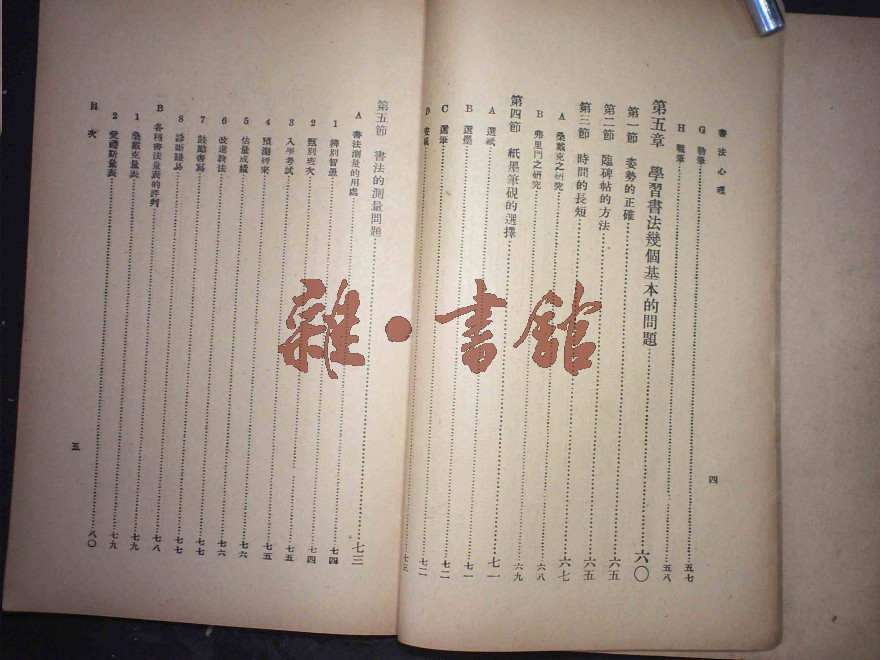 書法心理
四
G 勒筆……五七
H 戰筆……五八
第五章 學習書法幾個基本的問題……六〇
第一節 姿勢的正確……六五
第二節 臨碑帖的方法……六五
第三節 時間的長短……六七
A 桑戴克之研究……六八
B 弗里門之研究……六九
第四節 紙墨筆硯的選擇……七一
A 選紙……七一
B 選墨……七二
C 選筆……七二
D……七三
第五節 書法的測量問題……七三
A 書法測量的用處……七四
1 辨別智愚……七四
2 甄別班次……七五
3 入學考試……七五
4 預測將來……七六
5 估量成績……七六
6 改進教法……七七
7 鼓勵書寫……七七
8 診斷難易……七八
B 各種書法量表的評判……七九
1 桑戴克量表……七九
2 愛禮斯量表……八〇
目次
五
雜·書館